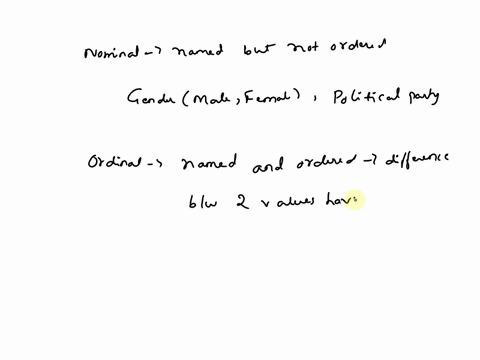 Nominal -> named but not ordered
Gender (Male, Female), Political party
Ordinal -> named and ordered -> difference
b/w 2 values hav